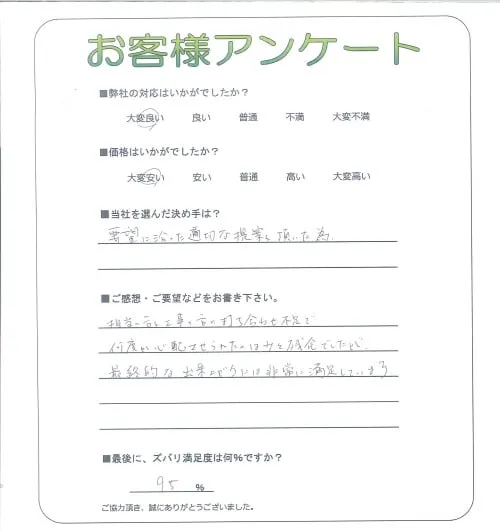 お客様アンケート
■弊社の対応はいかがでしたか？
大変良い 良い 普通 不満 大変不満
■価格はいかがでしたか？
大変安い 安い 普通 高い 大変高い
■当社を選んだ決め手は？
要望に沿った適切な提案を頂いた為
■ご感想・ご要望などをお書き下さい。
担当の方と工事の方の打ち合わせ不足で
何度か心配させられたのはやや残念でしたが、
最終的な出来上がりには非常に満足しています
■最後に、ズバリ満足度は何％ですか？
95 ％
ご協力頂き、誠にありがとうございました。